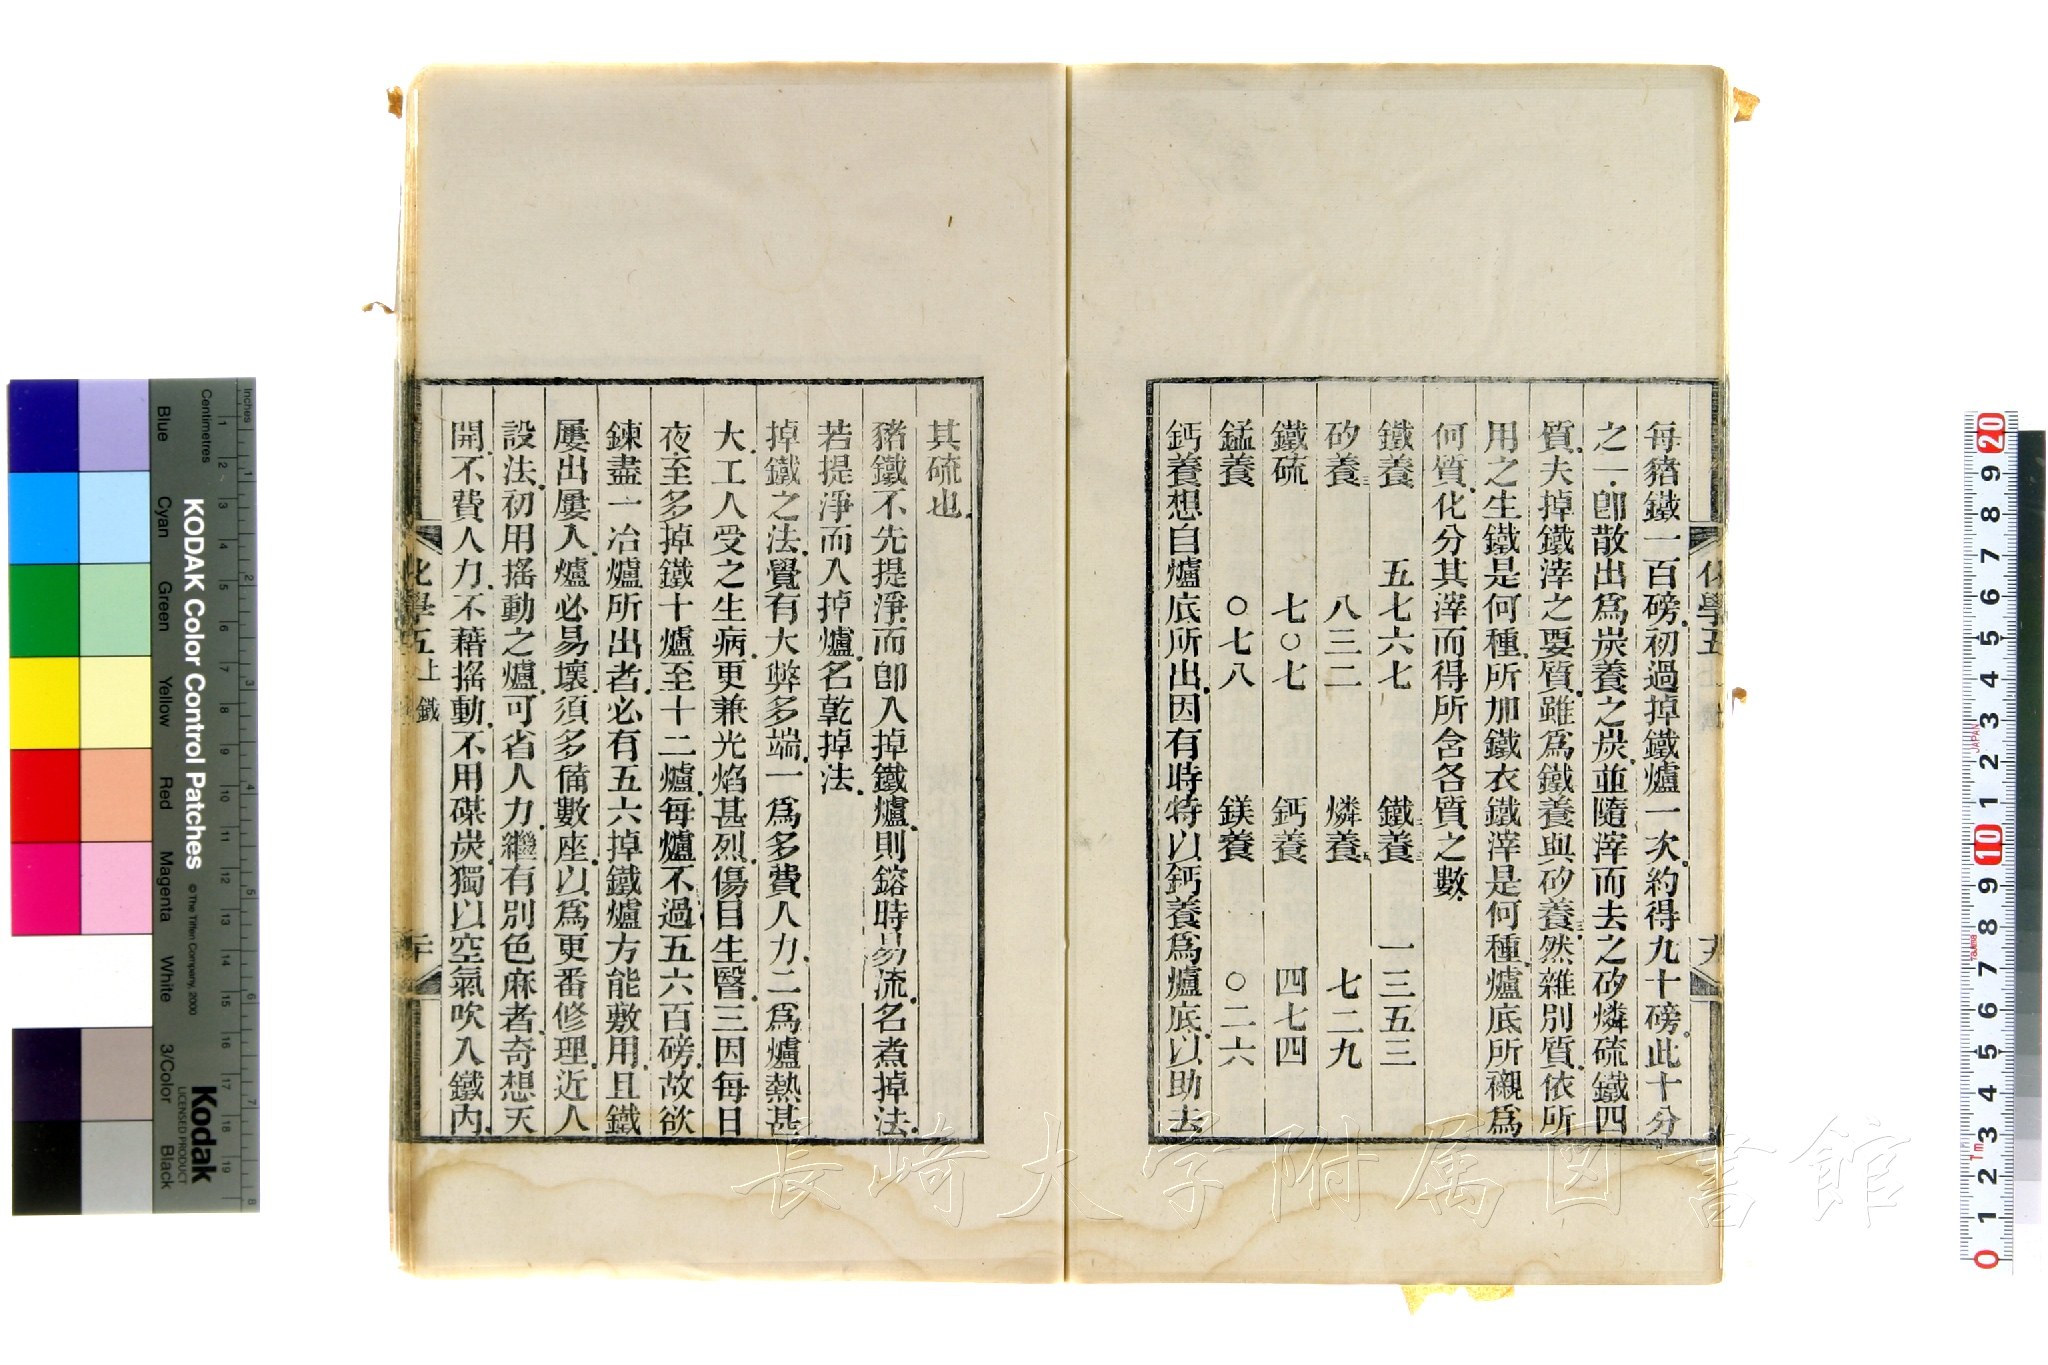 每豬鐵一百磅初過掉鐵爐一次約得九十磅此十分
之一卽散出爲炭養之炭並隨滓而去之矽燐硫鐵四
質夫掉鐵滓之要質雖爲鐵養與矽養然雜別質依所
用之生鐵是何種所加鐵衣鐵滓是何種爐底所襯爲
何質化分其滓而得所含各質之數
鐵養 五七六七 鐵養 一三五三
矽養 八三二 燐養 七二九
鐵硫 七〇七 鈣養 四七四
錳養 〇七八 鎂養 〇二六
鈣養想自爐底所出因有時特以鈣養爲爐底以助去
化學五
其硫也
豬鐵不先提淨而卽入掉鐵爐則鎔時易流名煮掉法
若提淨而入掉爐名乾掉法
掉鐵之法覺有大弊多端一爲多費人力二爲爐熱甚
大工人受之生病更兼光焰甚烈傷目生醫三因每日
夜至多掉鐵十爐至十二爐每爐不過五六百磅故欲
鍊盡一冶爐所出者必有五六掉鐵爐方能敷用且鐵
屢出屢入爐必易壞須多備數座以爲更番修理近人
設法初用搖動之爐可省人力繼有別色麻者奇想天
開不費人力不藉搖動不用礤炭獨以空氣吹入鐵內
化學五上 鐵 二十
KODAK Color Control Patches
© The Tiffen Company, 2000
Kodak
LICENSED PRODUCT
Inches
Centimetres
Blue Cyan Green Yellow Red Magenta White 3/Color Black
1 2 3 4 5 6 7 8 9 10 11 12 13 14 15 16 17 18 19
1 2 3 4 5 6 7 8
20 9 8 7 6 5 4 3 2 1 10 9 8 7 6 5 4 3 2 1 0
JAPAN
Tajima
7m
長崎大学附属図書館